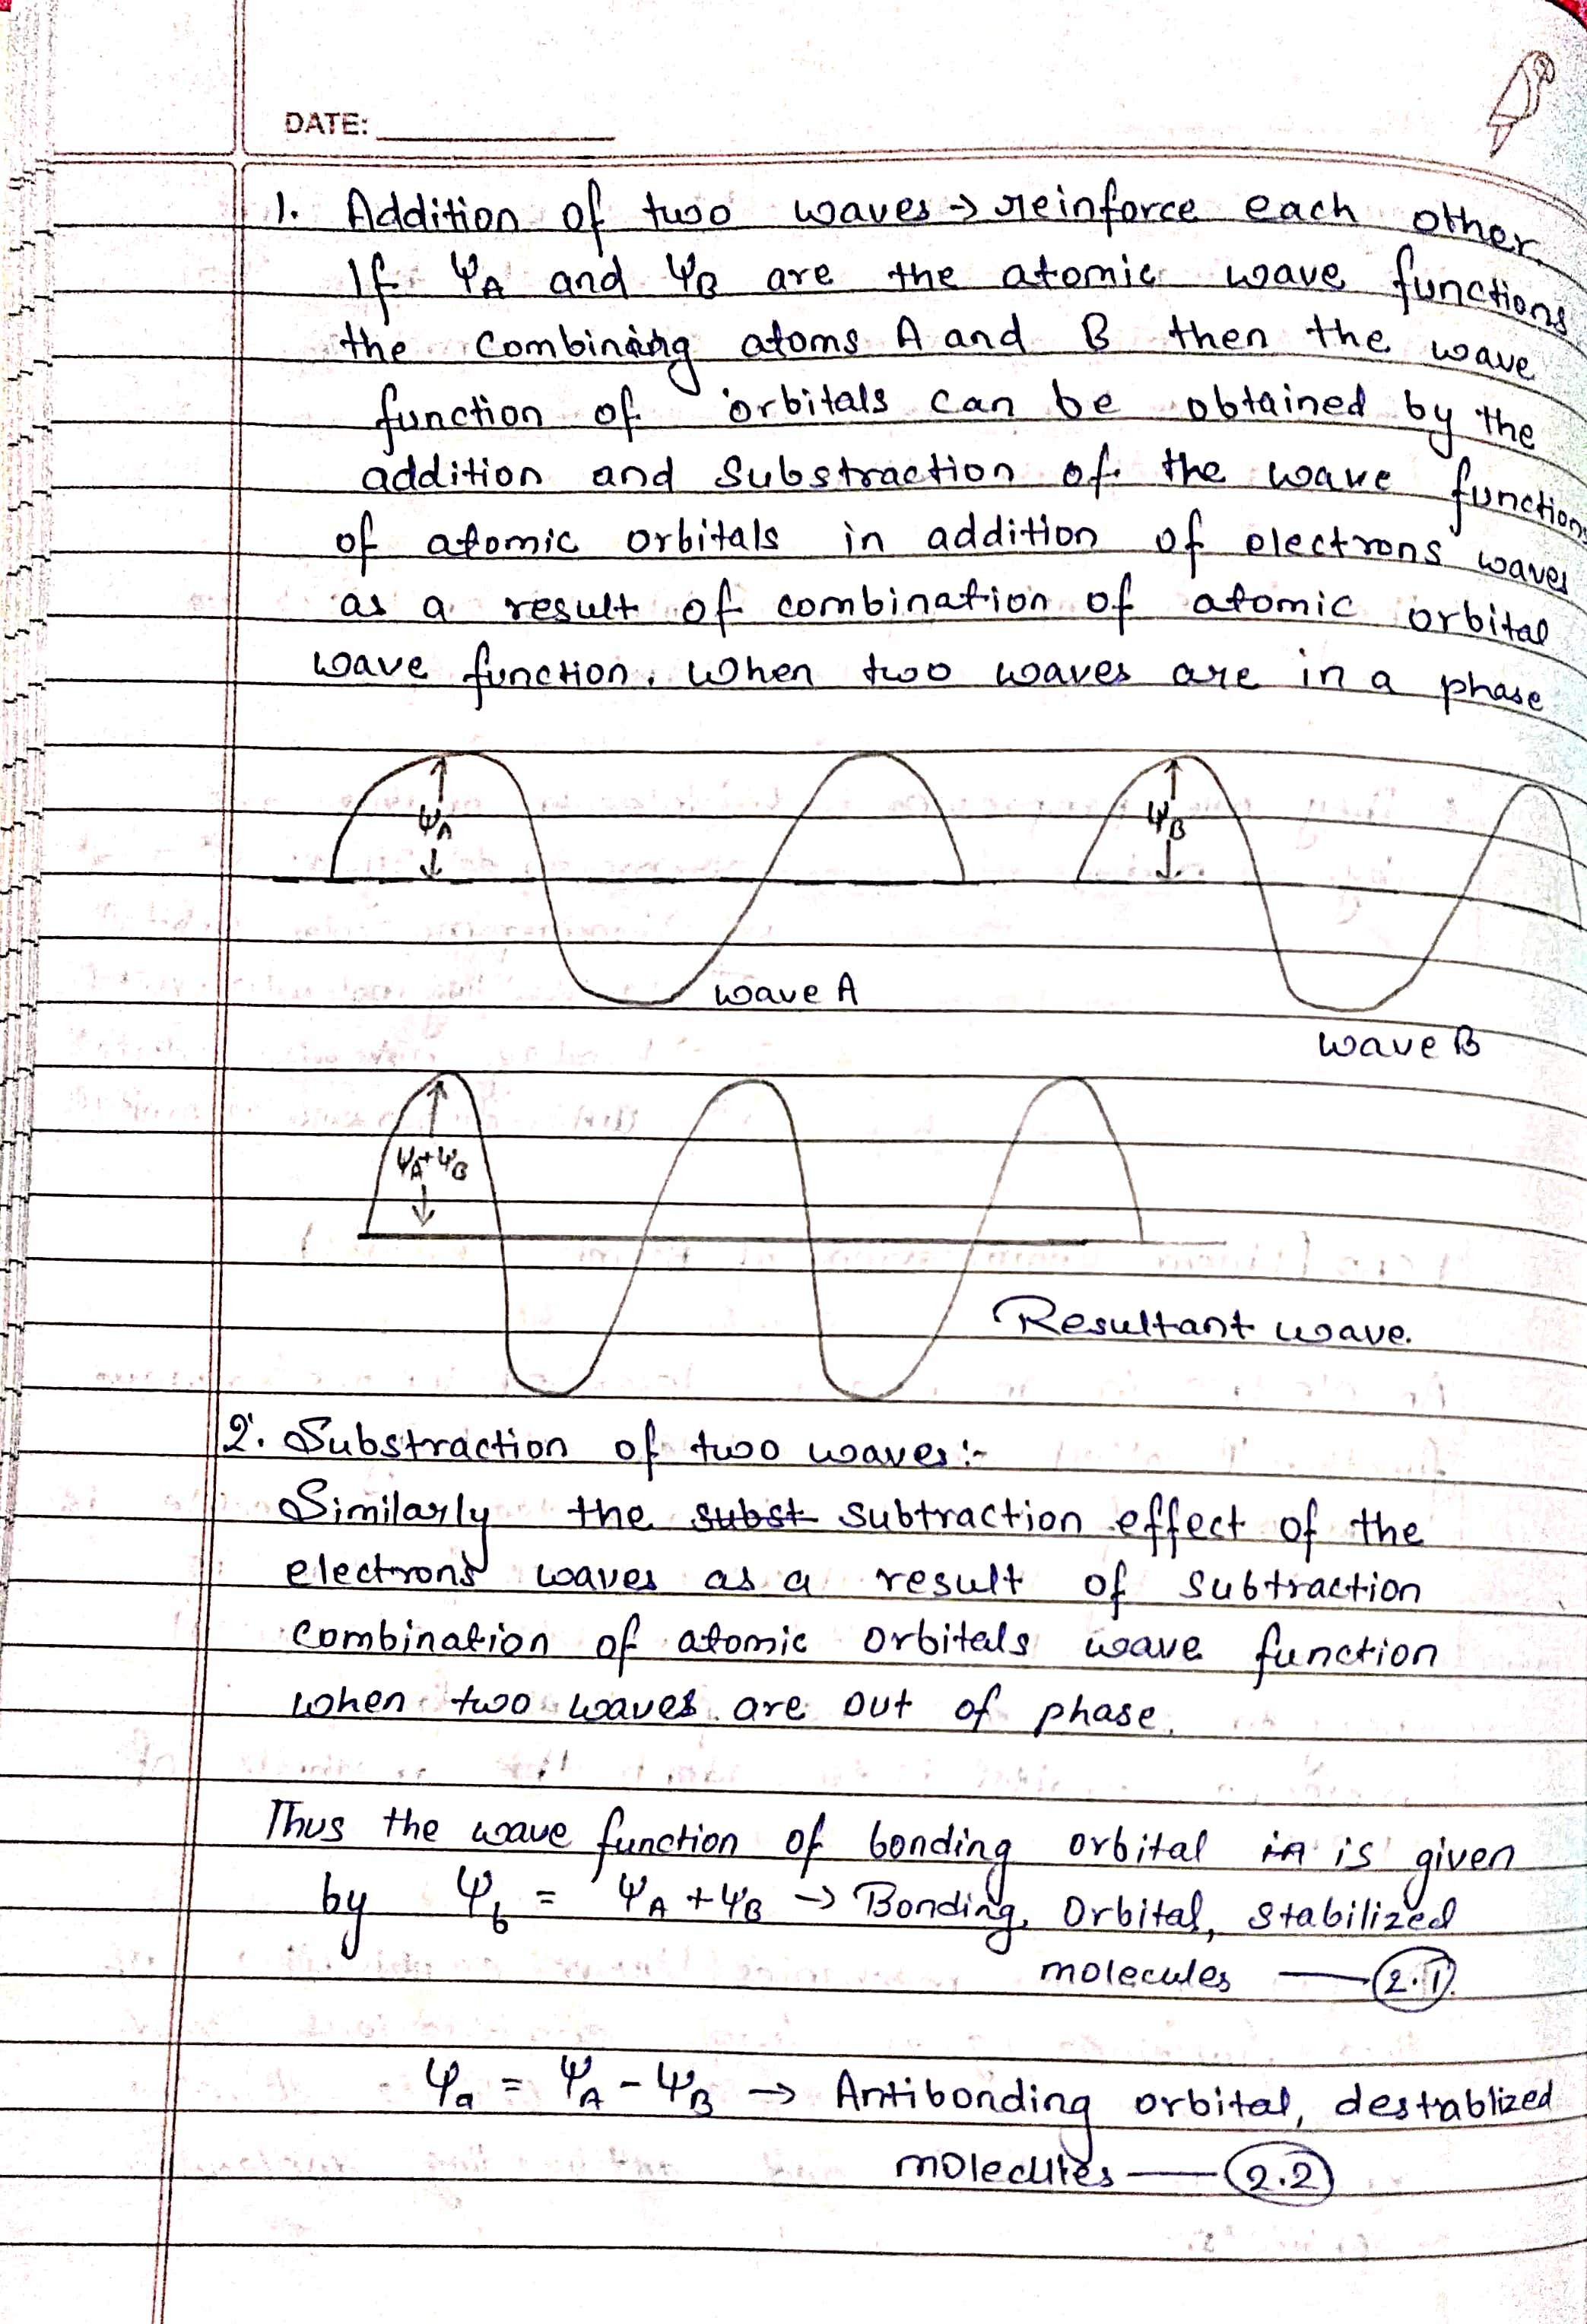 DATE:
1. Addition of two waves → reinforce each other.
If ΨA and ΨB are the atomic wave functions
the combining atoms A and B then the wave
function of orbitals can be obtained by the
addition and Substraction of the wave functions
of atomic orbitals in addition of electrons waves
as a result of combination of atomic orbital
wave function. When two waves are in a phase
ΨA
ΨB
wave A
wave B
ΨA+ΨB
Resultant wave.
2. Substraction of two waves:-
Similarly the subst subtraction effect of the
electrons waves as a result of subtraction
combination of atomic orbitals wave function
when two waves are out of phase.
Thus the wave function of bonding orbital is given
by Ψb = ΨA + ΨB → Bonding, Orbital, stabilized
molecules — 2.1
Ψa = ΨA - ΨB → Antibonding orbital, destablized
molecules — 2.2